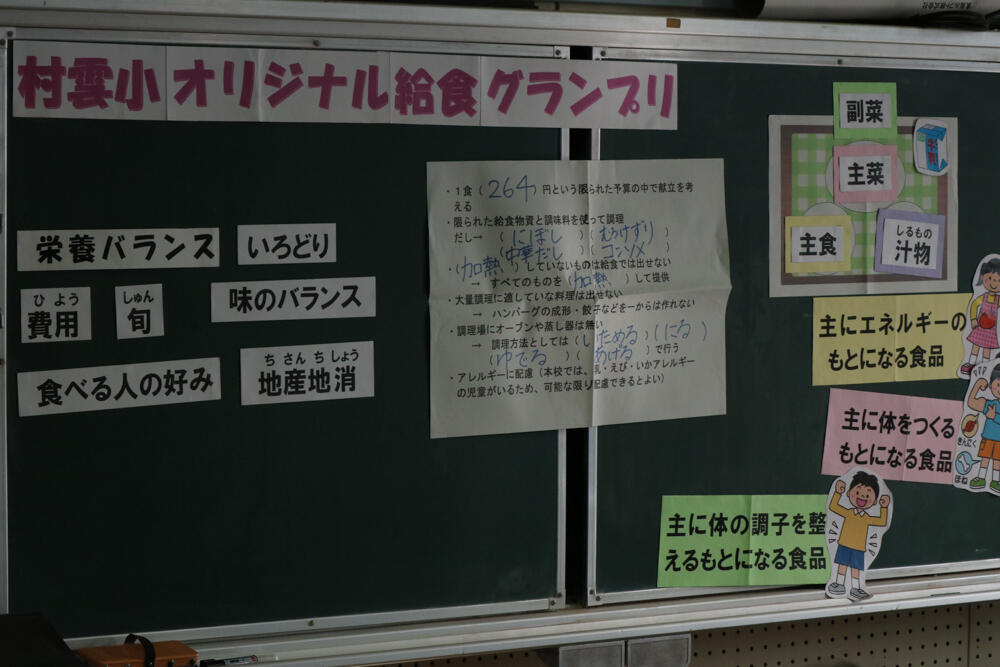 村雲小 オリジナル給食グランプリ
栄養バランス
いろどり
ひよう
費用
しゅん
旬
味のバランス
食べる人の好み
ちさんちしょう
地産地消
・1食（264）円という限られた予算の中で献立を考
える
・限られた給食物資と調味料を使って調理
だし→（にぼし）（むろけずり）
（中華だし）（コンソメ）
・（加熱）していないものは給食では出せない
→ すべてのものを（加熱）して提供
・大量調理に適していな料理は出せない
→ ハンバーグの成形・餃子などを一からは作れない
・調理場にオーブンや蒸し器は無い
→ 調理方法としては（いためる）（にる）
（ゆでる）（あげる）で行う
・アレルギーに配慮（本校では、乳・えび・いかアレルギー
の児童がいるため、可能な限り配慮できるとよい）
副菜
牛乳
主菜
主食
しるもの
汁物
主にエネルギーの
もとになる食品
主に体をつくる
もとになる食品
きんにく
ほね
主に体の調子を整
えるもとになる食品